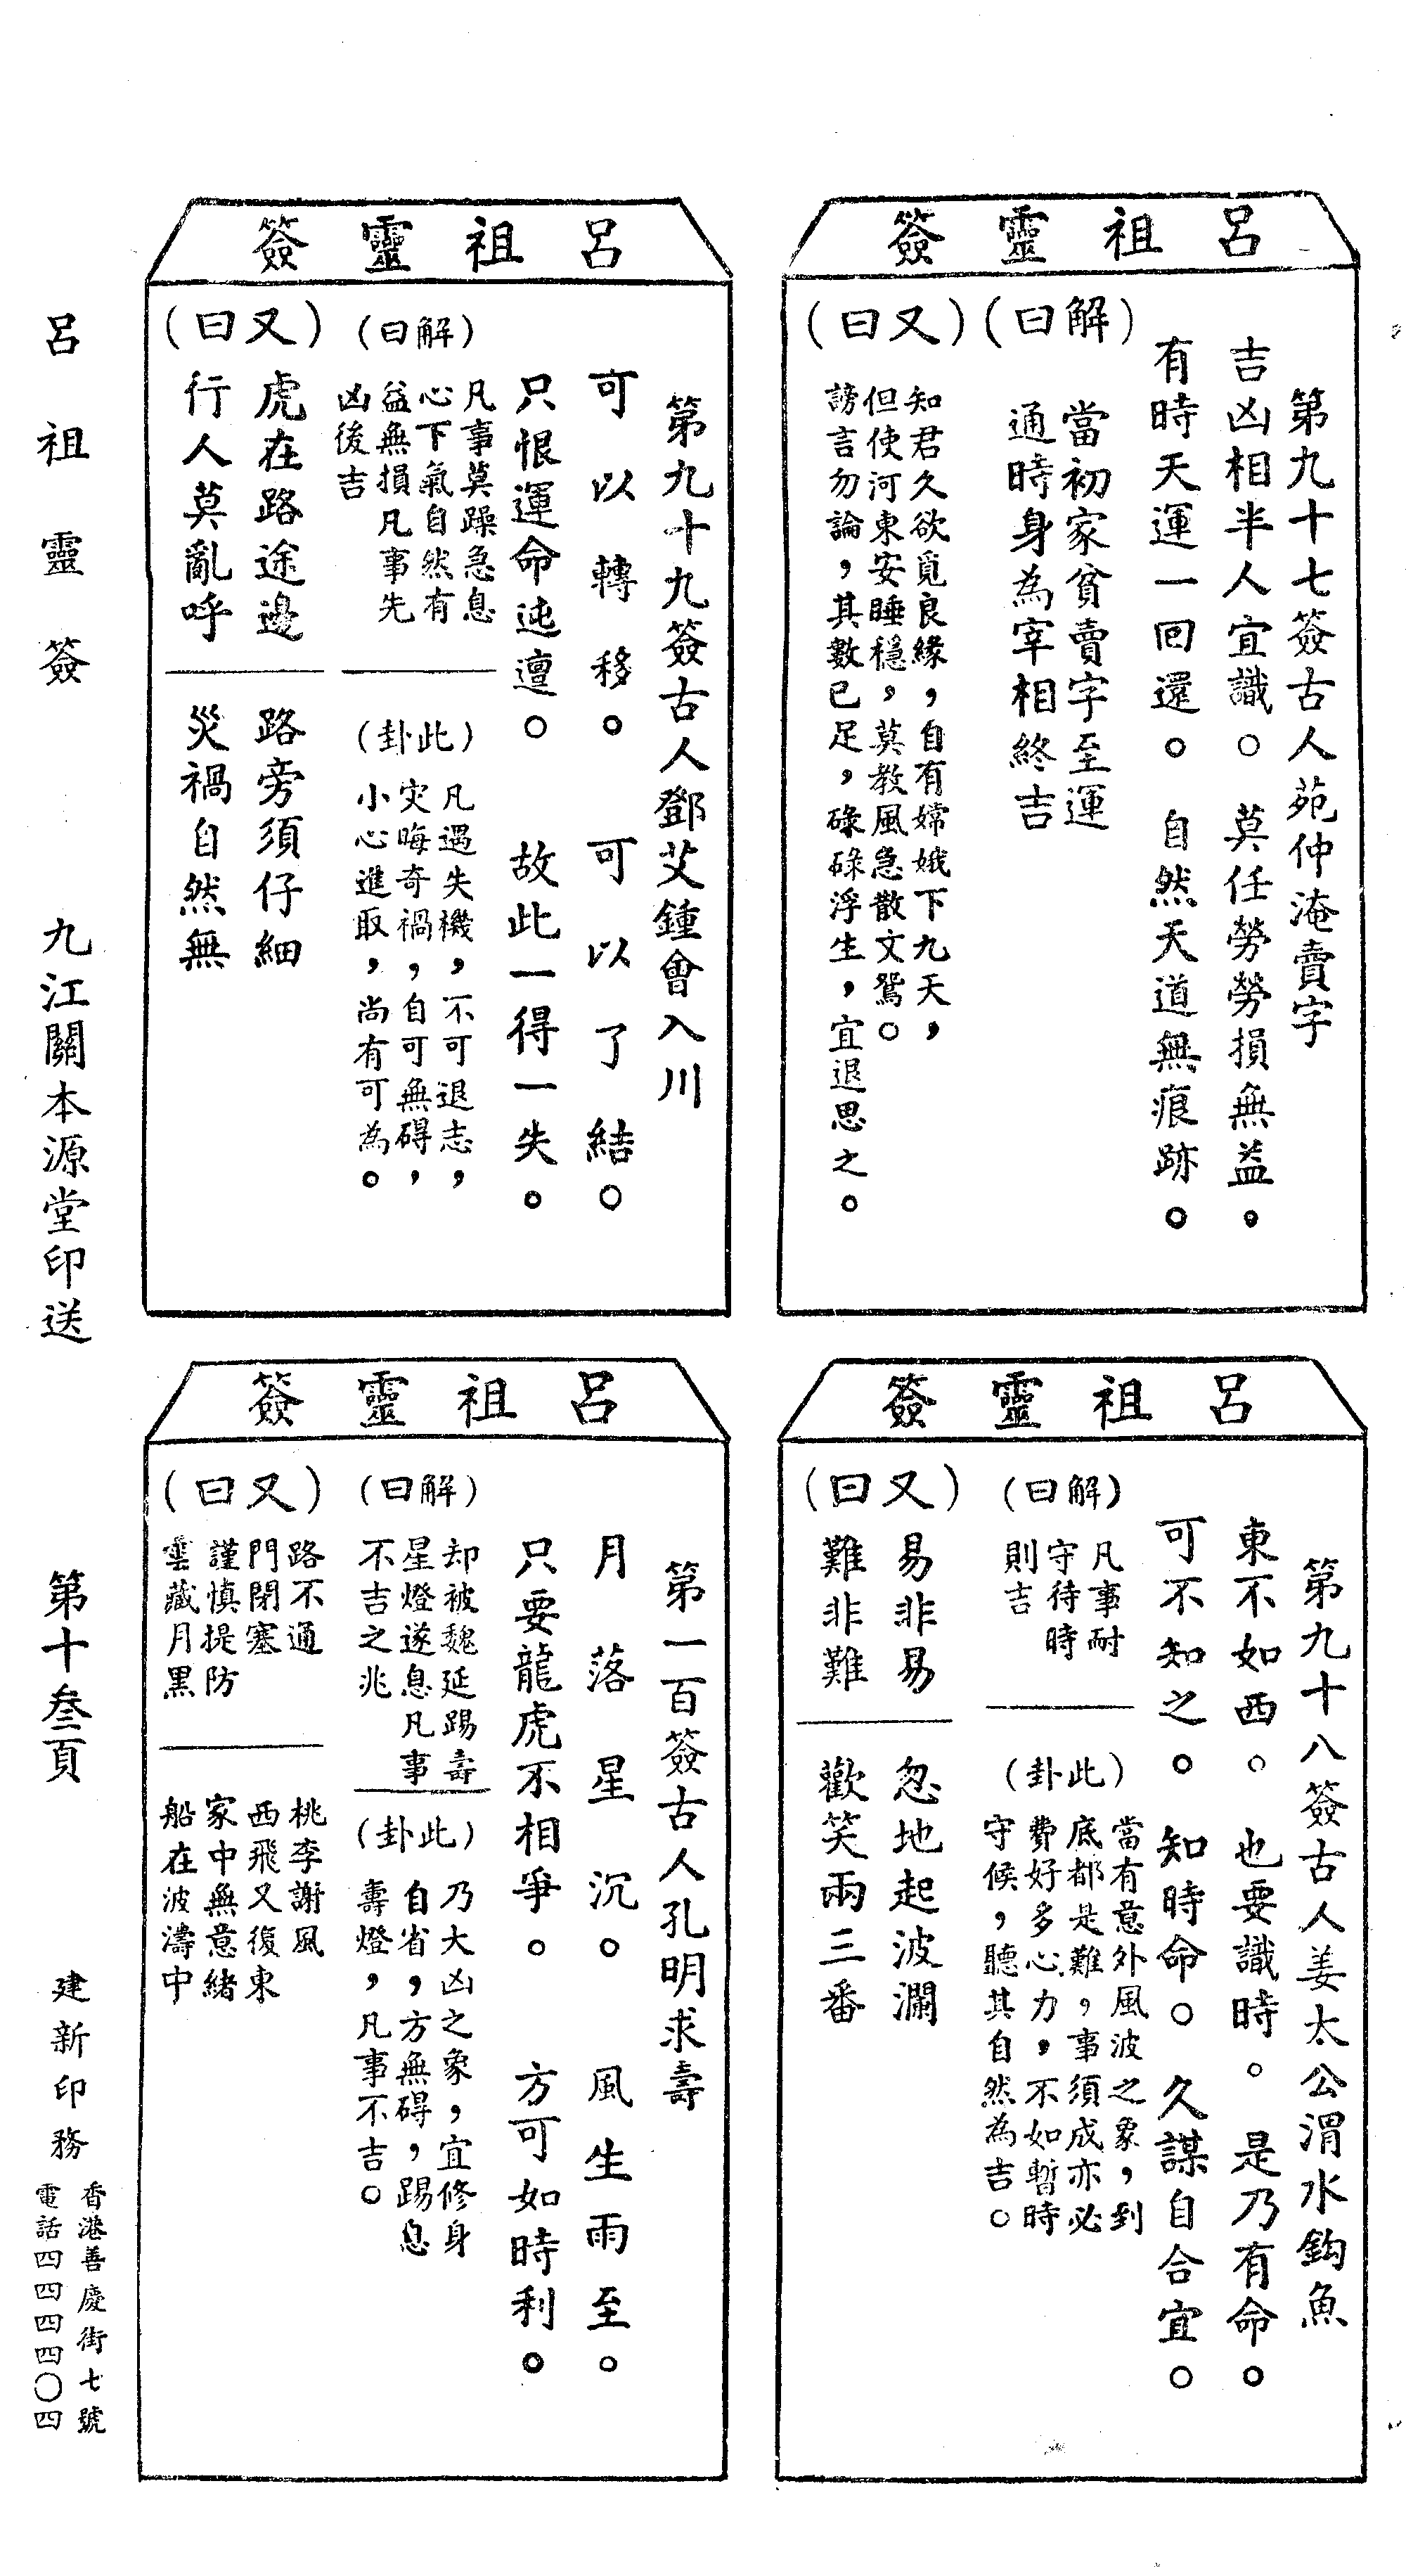 呂祖靈簽
第九十七簽古人苑仲淹賣字
吉凶相半人宜識。莫任勞勞損無益。
有時天運一回還。自然天道無痕跡。
（解曰）
當初家貧賣字至運
通時身為宰相終吉
（又曰）
知君久欲覓良緣，自有嫦娥下九天，
但使河東安睡穩，莫教風急散文鴛。
謗言勿論，其數已足，碌碌浮生，宜退思之。
呂祖靈簽
第九十八簽古人姜太公渭水鈎魚
東不如西。也要識時。是乃有命。
可不知之。知時命。久謀自合宜。
（解曰）
凡事耐
守待時
則吉
（此卦）
當有意外風波之象，到
底都是難，事須成亦必
費好多心力，不如暫時
守候，聽其自然為吉。
（又曰）
易非易
難非難
忽地起波瀾
歡笑兩三番
呂祖靈簽
第九十九簽古人鄧艾鍾會入川
可以轉移。可以了結。
只恨運命迍邅。故此一得一失。
（解曰）
凡事莫躁急息
心下氣自然有
益無損凡事先
凶後吉
（此卦）
凡遇失機，不可退志，
灾晦奇禍，自可無碍，
小心進取，尚有可為。
（又曰）
虎在路途邊
行人莫亂呼
路旁須仔細
災禍自然無
呂祖靈簽
第一百簽古人孔明求壽
月落星沉。風生雨至。
只要龍虎不相爭。方可如時利。
（解曰）
却被魏延踢壽
星燈遂息凡事
不吉之兆
（此卦）
乃大凶之象，宜修身
自省，方無碍，踢息
壽燈，凡事不吉。
（又曰）
路不通
門閉塞
謹慎提防
雲藏月黑
桃李謝風
西飛又復東
家中無意緒
船在波濤中
呂祖靈簽
九江關本源堂印送
第十叁頁
建新印務
香港善慶街七號
電話四四四四〇四